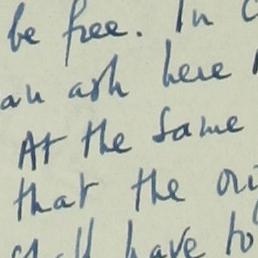 be free. In
an ash here
At the same
that the
have to